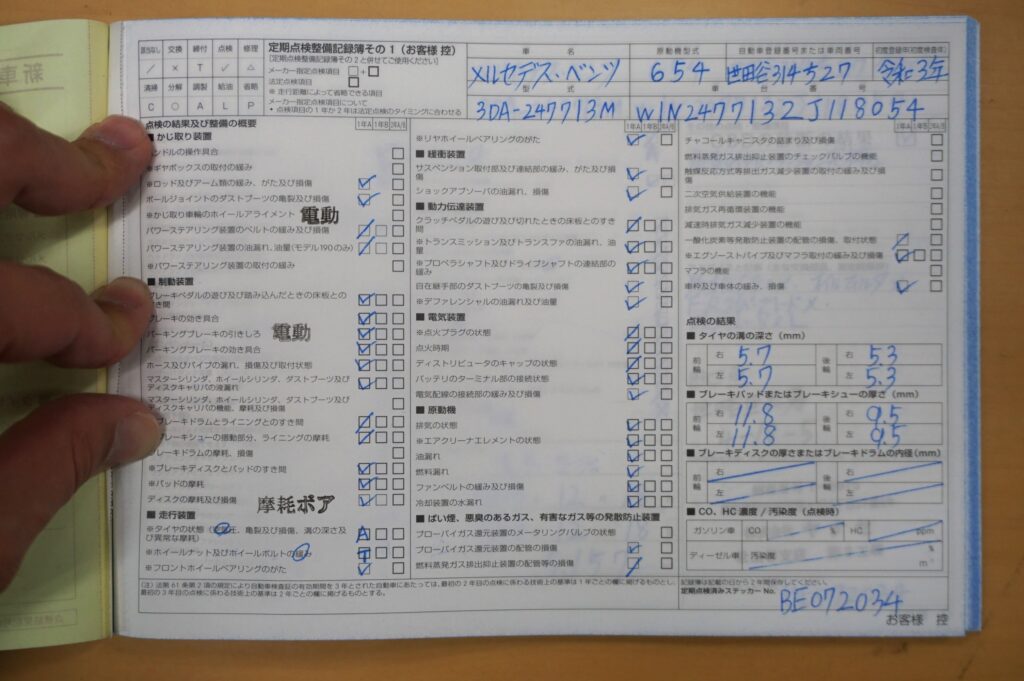 定期点検整備記録簿その1(お客様 控)
[定期点検整備記録簿その2と併せてご使用ください]
メーカー指定点検項目 □+□
法定点検項目 □
※ 走行距離によって省略できる項目
メーカー指定点検項目について
・点検項目の1年か2年は法定点検のタイミングに合わせる
該当なし 交換 締付 点検 修理
/ × T ✓ △
清掃 分解 調整 給油 省略
C ○ A L P
車名 原動機型式 自動車登録番号または車両番号 初度登録年(初度検査年)
メルセデス・ベンツ 654 世田谷314ち27 令和3年
型式 車台番号
3DA-247713M W1N2477132J118054
点検の結果及び整備の概要 1年A 1年B 2年A/B
■ かじ取り装置
ンドルの操作具合
※ギヤボックスの取付の緩み
※ロッド及びアーム類の緩み、がた及び損傷
ボールジョイントのダストブーツの亀裂及び損傷
※かじ取り車輪のホイールアライメント 電動
パワーステアリング装置のベルトの緩み及び損傷
パワーステアリング装置の油漏れ、油量(モデル190のみ)
※パワーステアリング装置の取付の緩み
■ 制動装置
ブレーキペダルの遊び及び踏み込んだときの床板とのすき間
ブレーキの効き具合
パーキングブレーキの引きしろ 電動
パーキングブレーキの効き具合
ホース及びパイプの漏れ、損傷及び取付状態
マスターシリンダ、ホイールシリンダ、ダストブーツ及びディスクキャリパの液漏れ
マスターシリンダ、ホイールシリンダ、ダストブーツ及びディスクキャリパの機能、摩耗及び損傷
ブレーキドラムとライニングとのすき間
ブレーキシューの摺動部分、ライニングの摩耗
ブレーキドラムの摩耗、損傷
※ブレーキディスクとパッドのすき間
※パッドの摩耗
ディスクの摩耗及び損傷 摩耗ボア
■ 走行装置
※タイヤの状態(空気圧、亀裂及び損傷、溝の深さ及び異常な摩耗) A
※ホイールナット及びホイールボルトの緩み T
※フロントホイールベアリングのがた
※リヤホイールベアリングのがた 1年A 1年B 2年A/B
■ 緩衝装置
サスペンション取付部及び連結部の緩み、がた及び損傷
ショックアブソーバの油漏れ、損傷
■ 動力伝達装置
クラッチペダルの遊び及び切れたときの床板とのすき間
※トランスミッション及びトランスファの油漏れ、油量
※プロペラシャフト及びドライブシャフトの連結部の緩み
自在継手部のダストブーツの亀裂及び損傷
※デファレンシャルの油漏れ及び油量
■ 電気装置
※点火プラグの状態
点火時期
ディストリビュータのキャップの状態
バッテリのターミナル部の接続状態
電気配線の接続部の緩み及び損傷
■ 原動機
排気の状態
※エアクリーナエレメントの状態
油漏れ
燃料漏れ
ファンベルトの緩み及び損傷
冷却装置の水漏れ
■ ばい煙、悪臭のあるガス、有害なガス等の発散防止装置
ブローバイガス還元装置のメータリングバルブの状態
ブローバイガス還元装置の配管の損傷
燃料蒸発ガス排出抑止装置の配管等の損傷
チャコールキャニスタの詰まり及び損傷
燃料蒸発ガス排出抑止装置のチェックバルブの機能
触媒反応方式等排出ガス減少装置の取付の緩み及び損傷
二次空気供給装置の機能
排気ガス再循環装置の機能
減速時排気ガス減少装置の機能
一酸化炭素等発散防止装置の配管の損傷、取付状態
※エグゾーストパイプ及びマフラ取付の緩み及び損傷
マフラの機能
車枠及び車体の緩み、損傷
点検の結果
■ タイヤの溝の深さ(mm)
前輪 右 5.7 後輪 右 5.3
左 5.7 左 5.3
■ ブレーキパッドまたはブレーキシューの厚さ(mm)
前輪 右 11.8 後輪 右 9.5
左 11.8 左 9.5
■ ブレーキディスクの厚さまたはブレーキドラムの内径(mm)
前輪 右 後輪 右
左 左
■ CO、HC濃度/汚染度(点検時)
ガソリン車 CO % HC ppm
ディーゼル車 汚染度 %
(注)法第61条第2項の規定により自動車検査証の有効期間を3年とされた自動車にあたっては、最初の2年目の点検に係わる技術上の基準は1年ごとの欄に掲げるものとし、
最初の3年目の点検に係わる技術上の基準は2年ごとの欄に掲げるものとする。
記録簿は記載の日から2年間保存してください。
定期点検済みステッカーNo. BE072034
お客様 控